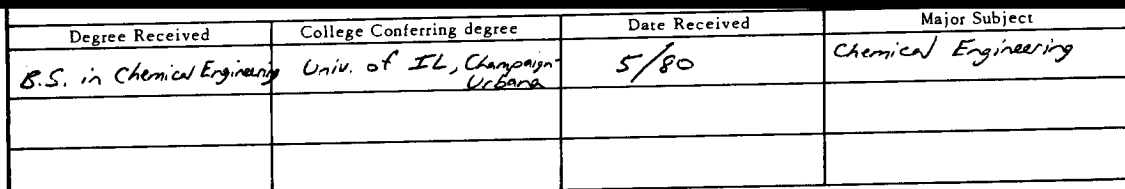 Degree Received College Conferring degree Date Received Major Subject
B.S. in Chemical Engineering Univ. of IL, Champaign- 5/80 Chemical Engineering
Urbana